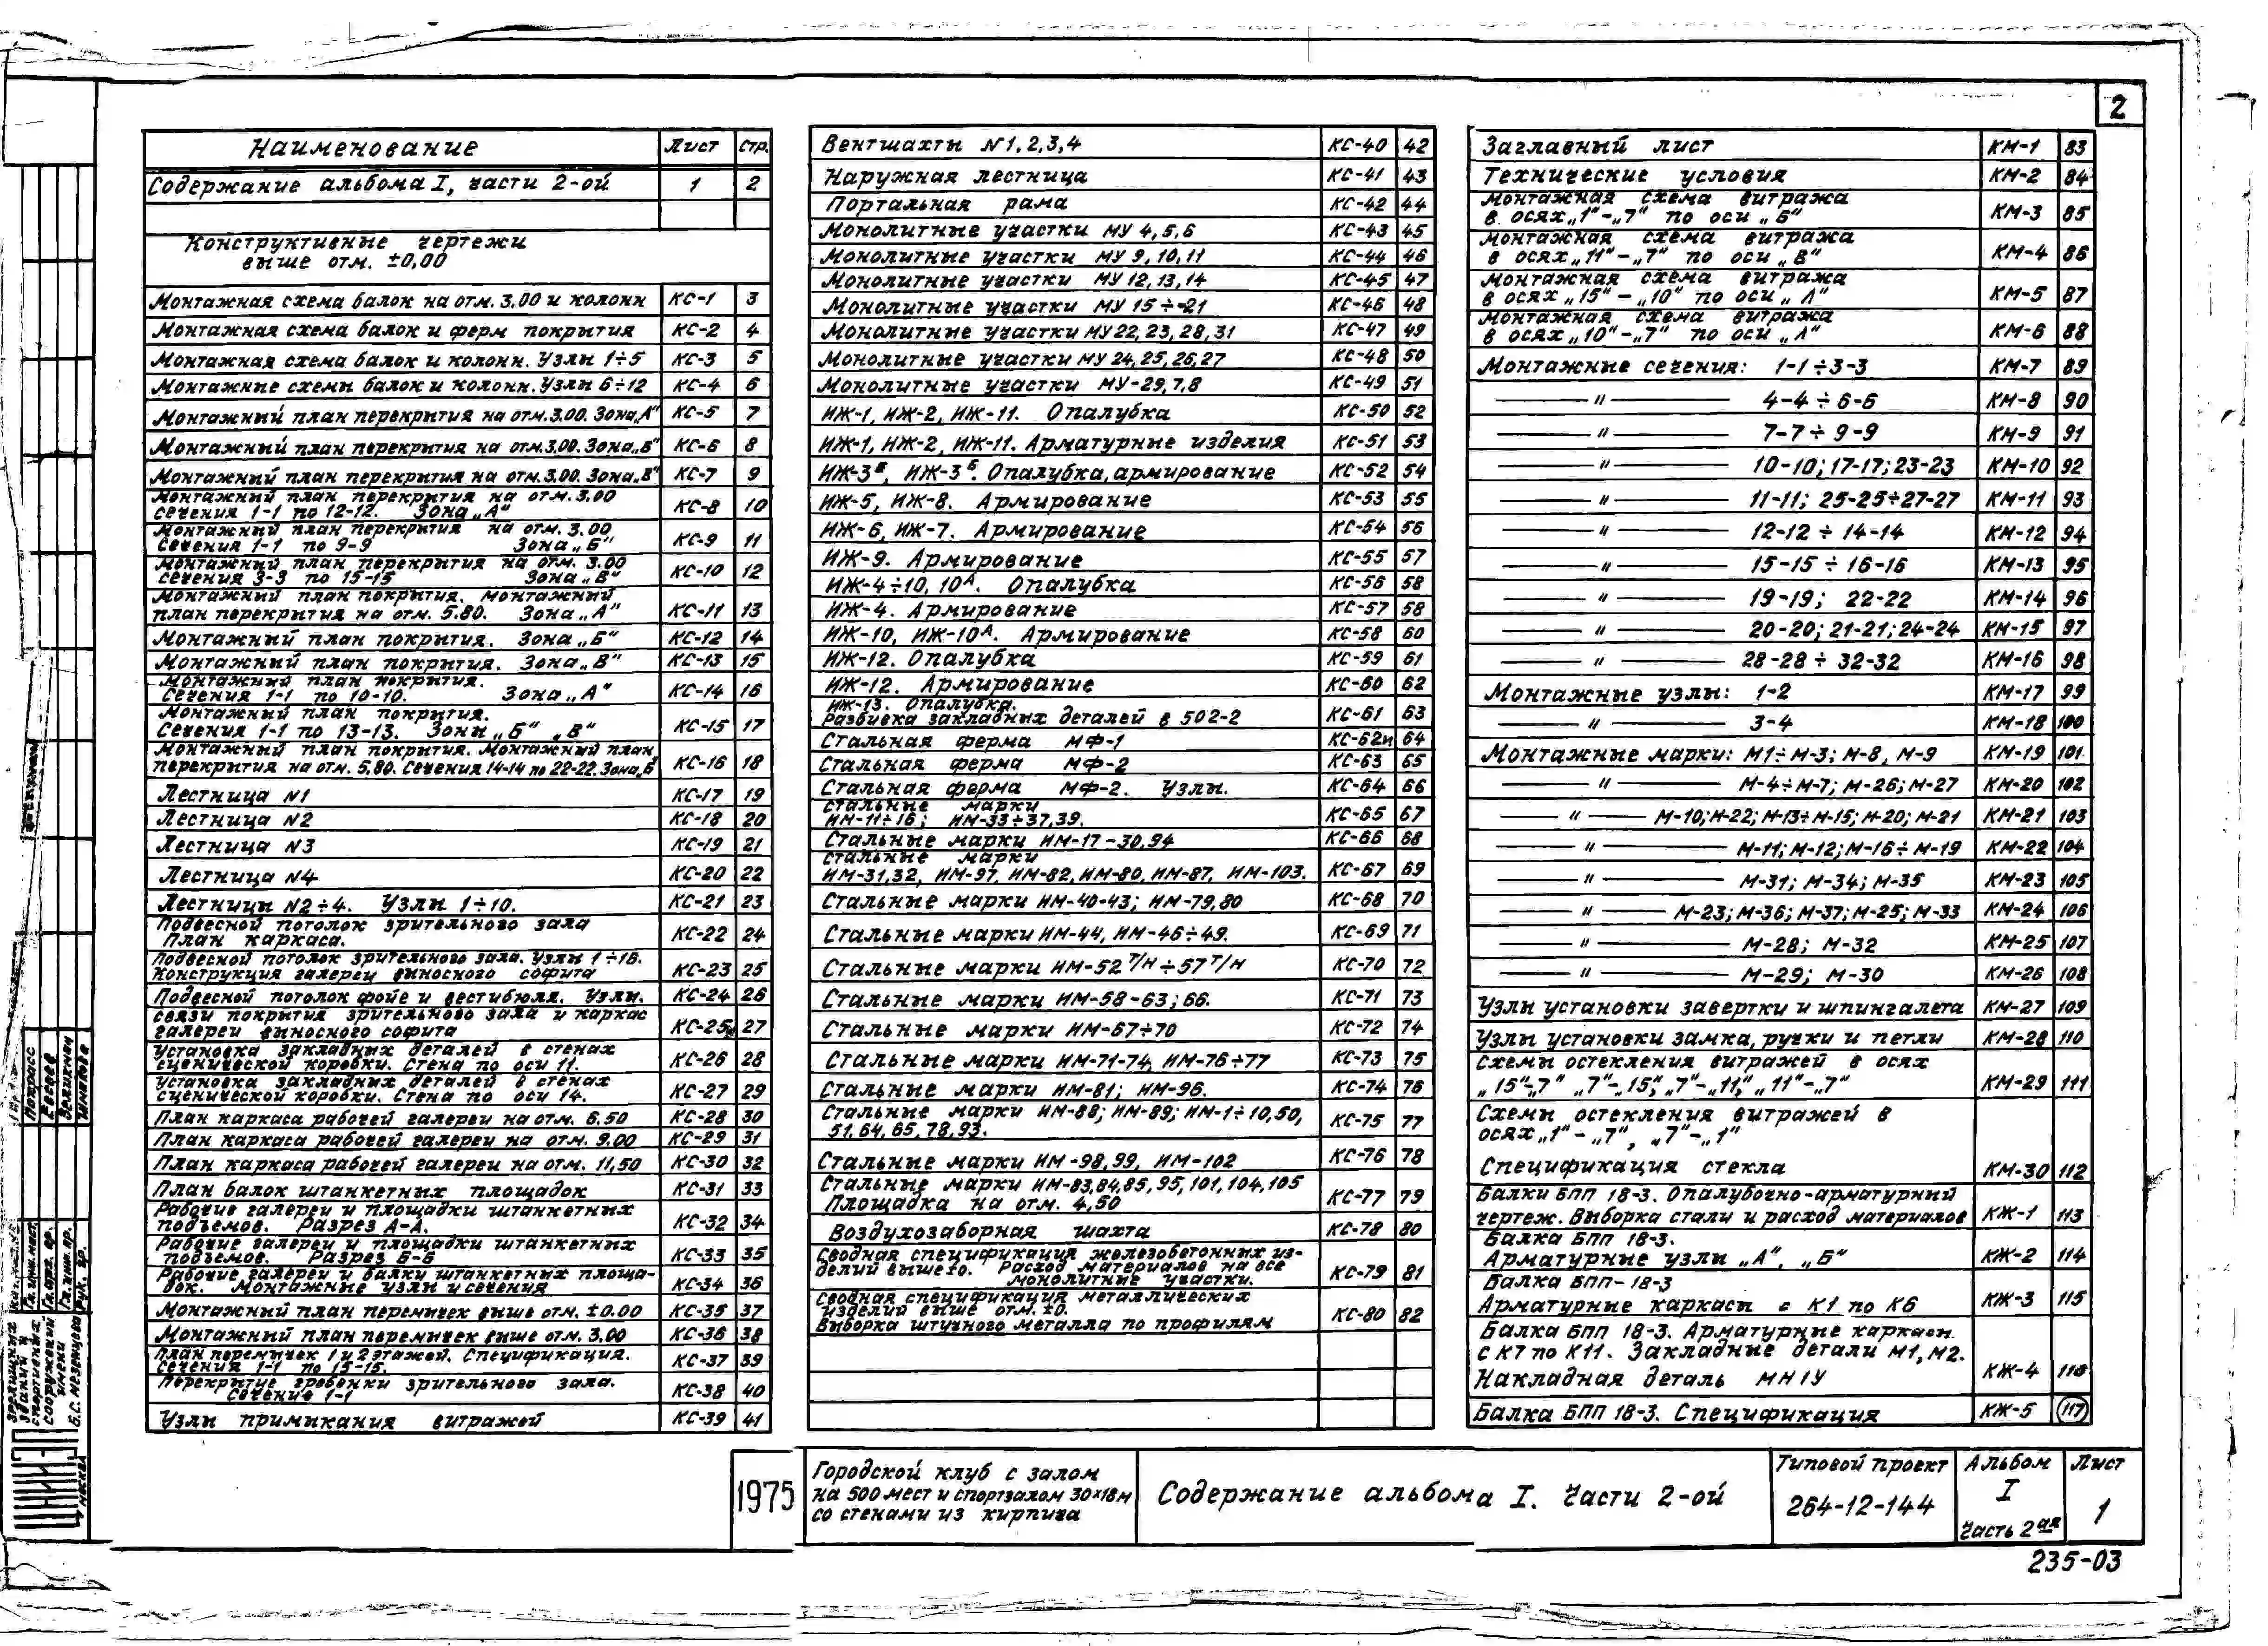 2
Наименование Лист Стр.
Содержание альбома I, части 2-ой 1 2
Конструктивные чертежи
выше отм. ±0,00
Монтажная схема балок на отм. 3.00 и колонн КС-1 3
Монтажная схема балок и ферм покрытия КС-2 4
Монтажная схема балок и колонн. Узлы 1÷5 КС-3 5
Монтажные схемы балок и колонн. Узлы 6÷12 КС-4 6
Монтажный план перекрытия на отм. 3.00. Зона „А" КС-5 7
Монтажный план перекрытия на отм. 3.00. Зона „Б" КС-6 8
Монтажный план перекрытия на отм. 3.00. Зона „В" КС-7 9
Монтажный план перекрытия на отм. 3.00
сечения 1-1 по 12-12. Зона „А" КС-8 10
Монтажный план перекрытия на отм. 3.00
Сечения 1-1 по 9-9 Зона „Б" КС-9 11
Монтажный план перекрытия на отм. 3.00
сечения 3-3 по 15-15 Зона „В" КС-10 12
Монтажный план покрытия. Монтажный
план перекрытия на отм. 5.80. Зона „А" КС-11 13
Монтажный план покрытия. Зона „Б" КС-12 14
Монтажный план покрытия. Зона „В" КС-13 15
Монтажный план покрытия.
Сечения 1-1 по 10-10. Зона „А" КС-14 16
Монтажный план покрытия.
Сечения 1-1 по 13-13. Зоны „Б" „В" КС-15 17
Монтажный план покрытия. Монтажный план
перекрытия на отм. 5.80. Сечения 14-14 по 22-22. Зона „Б КС-16 18
Лестница N1 КС-17 19
Лестница N2 КС-18 20
Лестница N3 КС-19 21
Лестница N4 КС-20 22
Лестницы N2÷4. Узлы 1÷10. КС-21 23
Подвесной потолок зрительного зала
План каркаса. КС-22 24
Подвесной потолок зрительного зала. Узлы 1÷16.
Конструкция галереи выносного софита КС-23 25
Подвесной потолок фойе и вестибюля. Узлы. КС-24 26
связи покрытия зрительного зала и каркас
галереи выносного софита КС-25 27
Установка закладных деталей в стенах
сценической коробки. Стена по оси 11. КС-26 28
Установка закладных деталей в стенах
сценической коробки. Стена по оси 14. КС-27 29
План каркаса рабочей галереи на отм. 6.50 КС-28 30
План каркаса рабочей галереи на отм. 9.00 КС-29 31
План каркаса рабочей галереи на отм. 11,50 КС-30 32
План балок штанкетных площадок КС-31 33
Рабочие галереи и площадки штанкетных
подъемов. Разрез А-А. КС-32 34
Рабочие галереи и площадки штанкетных
подъемов. Разрез Б-Б КС-33 35
Рабочие галереи и балки штанкетных площа-
док. Монтажные узлы и сечения КС-34 36
Монтажный план перемычек выше отм. ±0.00 КС-35 37
Монтажный план перемычек выше отм. 3,00 КС-36 38
План перемычек 1 и 2 этажей. Спецификация.
Сечения 1-1 по 15-15. КС-37 39
Перекрытие гребенки зрительного зала.
Сечение 1-1 КС-38 40
Узлы примыкания витражей КС-39 41
Вентшахты N1,2,3,4 КС-40 42
Наружная лестница КС-41 43
Портальная рама КС-42 44
Монолитные участки МУ 4,5,6 КС-43 45
Монолитные участки МУ 9,10,11 КС-44 46
Монолитные участки МУ 12,13,14 КС-45 47
Монолитные участки МУ 15÷21 КС-46 48
Монолитные участки МУ 22, 23, 28, 31 КС-47 49
Монолитные участки МУ 24, 25, 26, 27 КС-48 50
Монолитные участки МУ-29,7,8 КС-49 51
ИЖ-1, ИЖ-2, ИЖ-11. Опалубка КС-50 52
ИЖ-1, ИЖ-2, ИЖ-11. Арматурные изделия КС-51 53
ИЖ-3, ИЖ-3Б. Опалубка, армирование КС-52 54
ИЖ-5, ИЖ-8. Армирование КС-53 55
ИЖ-6, ИЖ-7. Армирование КС-54 56
ИЖ-9. Армирование КС-55 57
ИЖ-4÷10, 10А. Опалубка КС-56 58
ИЖ-4. Армирование КС-57 58
ИЖ-10, ИЖ-10А. Армирование КС-58 60
ИЖ-12. Опалубка КС-59 61
ИЖ-12. Армирование КС-60 62
ИЖ-13. Опалубка.
Разбивка закладных деталей в 502-2 КС-61 63
Стальная ферма МФ-1 КС-62и 64
Стальная ферма МФ-2 КС-63 65
Стальная ферма МФ-2. Узлы. КС-64 66
Стальные марки
ИМ-11÷16; ИМ-33÷37,39. КС-65 67
Стальные марки ИМ-17-30,94 КС-66 68
Стальные марки
ИМ-31,32, ИМ-97, ИМ-82, ИМ-80, ИМ-87, ИМ-103. КС-67 69
Стальные марки ИМ-40-43; ИМ-79,80 КС-68 70
Стальные марки ИМ-44, ИМ-46÷49. КС-69 71
Стальные марки ИМ-52 Т/Н÷57 Т/Н КС-70 72
Стальные марки ИМ-58-63; 66. КС-71 73
Стальные марки ИМ-67÷70 КС-72 74
Стальные марки ИМ-71-74, ИМ-76÷77 КС-73 75
Стальные марки ИМ-81; ИМ-96. КС-74 76
Стальные марки ИМ-88; ИМ-89; ИМ-1÷10,50,
51,64,65,78,93. КС-75 77
Стальные марки ИМ-98,99, ИМ-102 КС-76 78
Стальные марки ИМ-83,84,85,95,101,104,105
Площадка на отм. 4,50 КС-77 79
Воздухозаборная шахта КС-78 80
Сводная спецификация железобетонных из-
делий выше ±0. Расход материалов на все
монолитные участки. КС-79 81
Сводная спецификация металлических
изделий выше отм. ±0.
Выборка штучного металла по профилям КС-80 82
Заглавный лист КМ-1 83
Технические условия КМ-2 84
Монтажная схема витража
в осях „1"-„7" по оси „Б" КМ-3 85
Монтажная схема витража
в осях „11"-„7" по оси „В" КМ-4 86
Монтажная схема витража
в осях „15"-„10" по оси „Л" КМ-5 87
Монтажная схема витража
в осях „10"-„7" по оси „Л" КМ-6 88
Монтажные сечения: 1-1÷3-3 КМ-7 89
— " — 4-4÷6-6 КМ-8 90
— " — 7-7÷9-9 КМ-9 91
— " — 10-10; 17-17; 23-23 КМ-10 92
— " — 11-11; 25-25÷27-27 КМ-11 93
— " — 12-12÷14-14 КМ-12 94
— " — 15-15÷16-16 КМ-13 95
— " — 19-19; 22-22 КМ-14 96
— " — 20-20; 21-21; 24-24 КМ-15 97
— " — 28-28÷32-32 КМ-16 98
Монтажные узлы: 1-2 КМ-17 99
— " — 3-4 КМ-18 100
Монтажные марки: М1÷М-3; М-8, М-9 КМ-19 101
— " — М-4÷М-7; М-26; М-27 КМ-20 102
— " — М-10; М-22; М-13÷М-15; М-20; М-21 КМ-21 103
— " — М-11; М-12; М-16÷М-19 КМ-22 104
— " — М-31; М-34; М-35 КМ-23 105
— " — М-23; М-36; М-37; М-25; М-33 КМ-24 106
— " — М-28; М-32 КМ-25 107
— " — М-29; М-30 КМ-26 108
Узлы установки завертки и шпингалета КМ-27 109
Узлы установки замка, ручки и петли КМ-28 110
Схемы остекления витражей в осях
„15"-„7" „7"-„15", „7"-„11", „11"-„7" КМ-29 111
Схемы остекления витражей в
осях „1"-„7", „7"-„1"
Спецификация стекла КМ-30 112
Балки БПП 18-3. Опалубочно-арматурный
чертеж. Выборка стали и расход материалов КЖ-1 113
Балка БПП 18-3.
Арматурные узлы „А", „Б" КЖ-2 114
Балка БПП-18-3
Арматурные каркасы с К1 по К6 КЖ-3 115
Балка БПП 18-3. Арматурные каркасы
с К7 по К11. Закладные детали М1, М2.
Накладная деталь МН1У КЖ-4 116
Балка БПП 18-3. Спецификация КЖ-5 117
1975
Городской клуб с залом
на 500 мест и спортзалом 30×18м
со стенами из кирпича
Содержание альбома I. Части 2-ой
Типовой проект
264-12-144
Альбом
I
Часть 2ая
Лист
1
235-03
зрелищных
зданий и
спортивных
сооружений
имени
Б.С. Мезенцева
Москва
Гл. инж. маст.
Гл. арх. пр.
Гл. инж. пр.
Рук. гр.
Покрасс